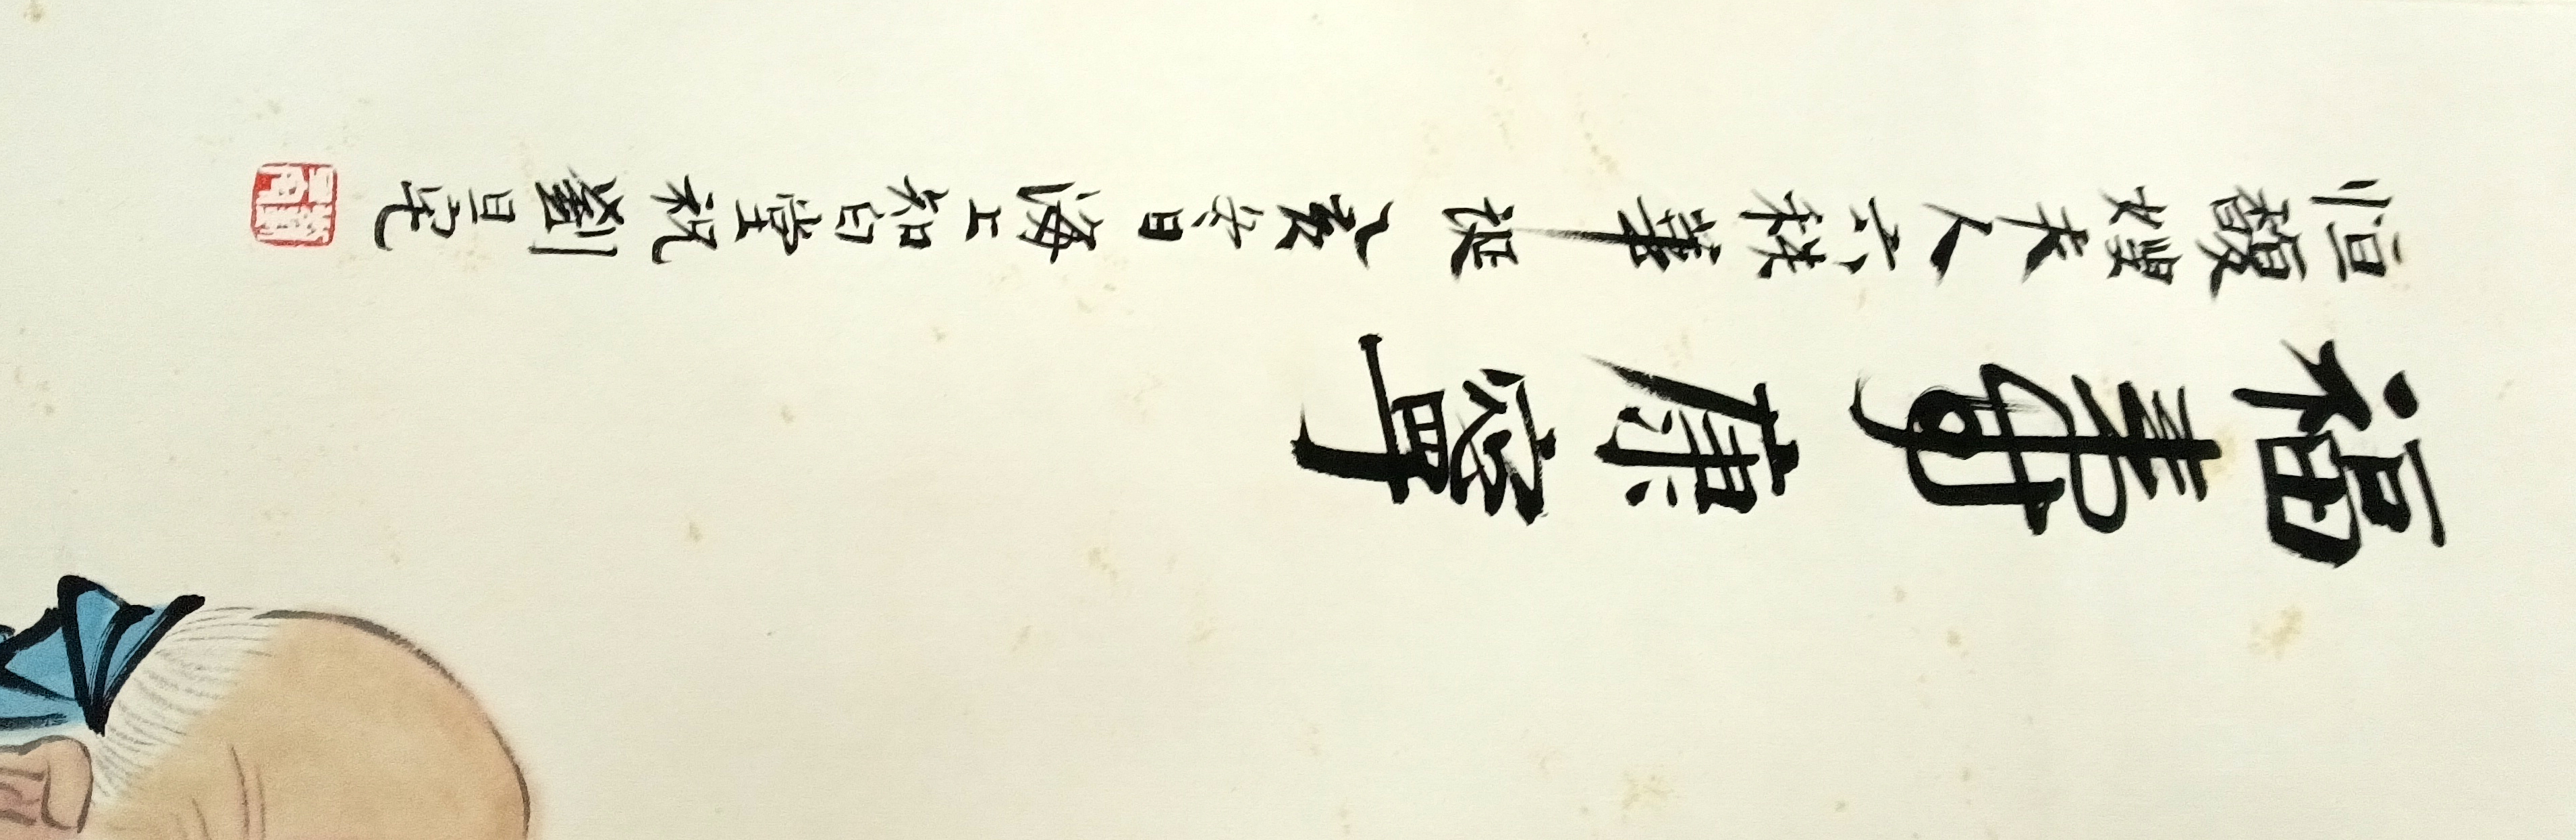 福壽康寧
恒馥嫂夫人六秩華辰乙亥冬日海上知白堂祝劉旦宅